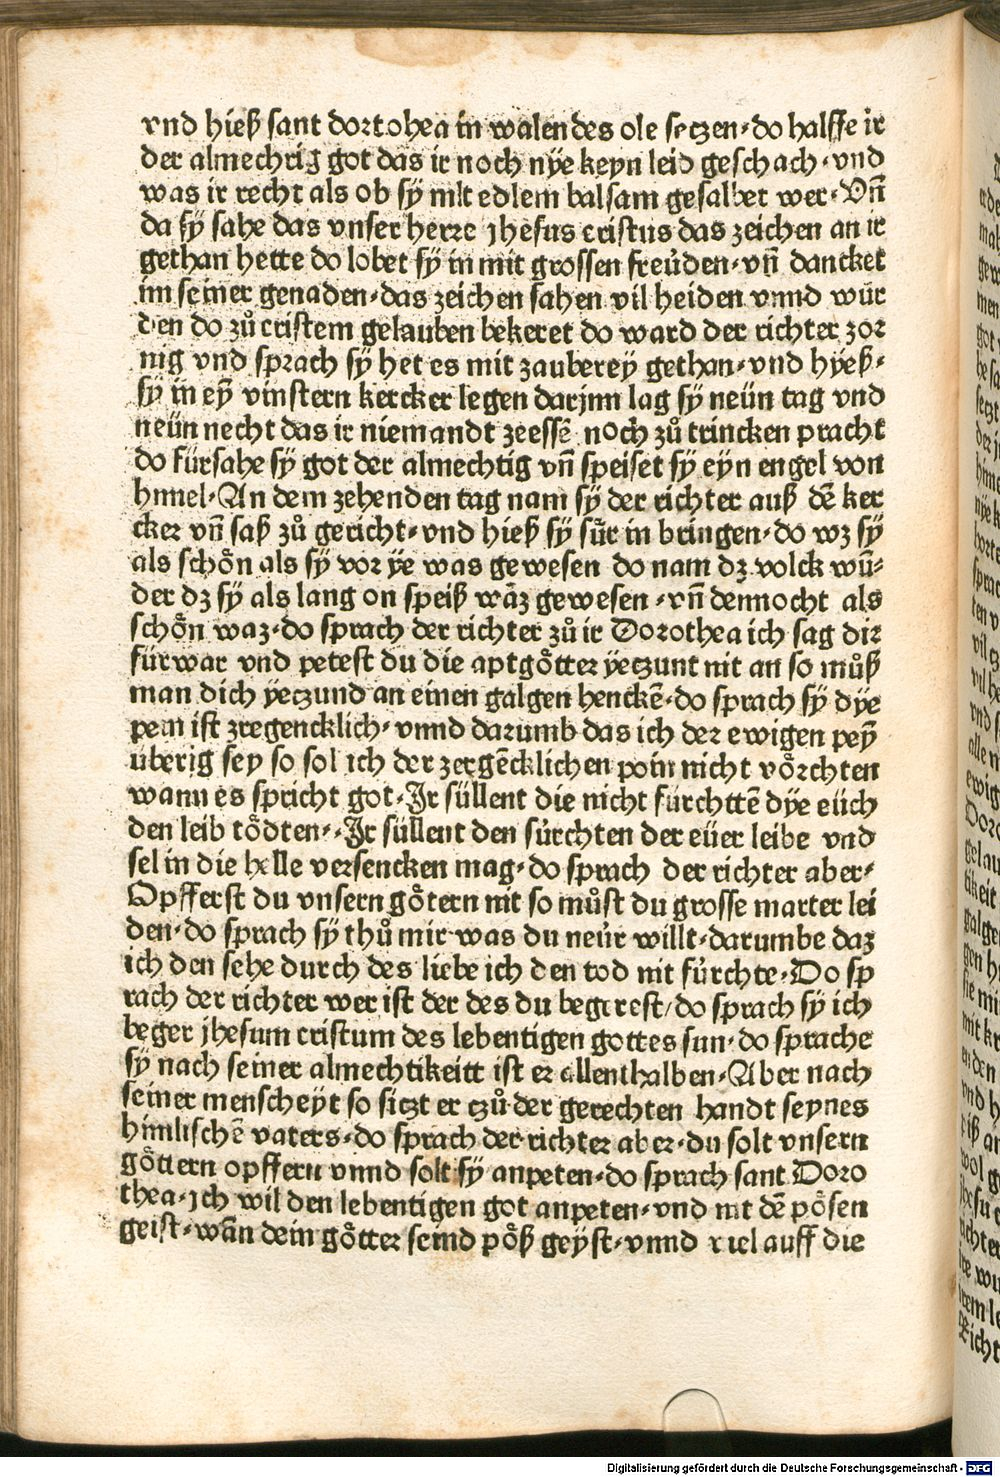 vnd hieß sant dortohea in walen des ole seczen·do halffe ir
der almechtig got das ir noch nÿe keyn leid geschach·vnd
was ir recht als ob sÿ mit edlem balsam gesalbet wer·Vñ
da sÿ sahe das vnser herre jhesus cristus das zeichen an ir
gethan hette do lobet sÿ in mit grossen freůden·vñ dancket
im seiner genaden·das zeichen sahen vil heiden vnnd wür
den do zů cristem gelauben bekeret do ward der richter zor
nig vnd sprach sÿ het es mit zauberey gethan·vnd hyeß·
sÿ in eÿ vinstern kercker legen darjnn lag sÿ neün tag vnd
neün necht das ir niemandt zeessē noch zů trincken pracht
do fürsahe sÿ got der almechtig vñ speiset sÿ eyn engel von
himel·An dem zehenden tag nam sÿ der richter auß dē ker
cker vñ saß zů gericht·vnd hieß sÿ für in bringen·do wz sÿ
als schön als sÿ vor ÿe was gewesen do nam dz volck wū⸗
der dz sÿ als lang on speiß waz gewesen·vñ dennocht als
schön waz·do sprach der richter zů ir Dorothea ich sag dir
fürwar vnd petest du die aptgötter yeczunt nit an so můß
man dich yeczund an einen galgen henckē·do sprach sÿ dÿe
pein ist zregencklich·vnnd darumb das ich der ewigen peÿ
überig sey so sol ich der zergēcklichen poin nicht vörchten
wann es spricht got·Ir süllent die nicht fürchttē dÿe eüch
den leib tödten··Ir süllent den fürchten der eüer leibe vnd
sel in die helle versencken mag·do sprach der richter aber·
Opfferst du vnsern götern nit so můst du grosse marter lei
den·do sprach sÿ thů mir was du neür willt·darumbe daz
ich den sehe durch des liebe ich den tod nit fürchte·Do sp
rach der richter wer ist der des du begerest/do sprach sÿ ich
beger jhesum cristum des lebentigen gottes sun·do sprache
sÿ nach seiner almechtikeitt ist er allenthalben·Aber nach
seiner menscheyt so siczt er czů der gerechten handt seynes
himlischē vaters·do sprach der richter aber·du solt vnsern
göttern opffern vnnd solt sÿ anpeten·do sprach sant Doro
thea·ich wil den lebentigen got anpeten·vnd nit dē pösen
geist·wañ dein götter seind pöß geÿst·vnnd viel auff die
Digitalisierung gefördert durch die Deutsche Forschungsgemeinschaft - DFG